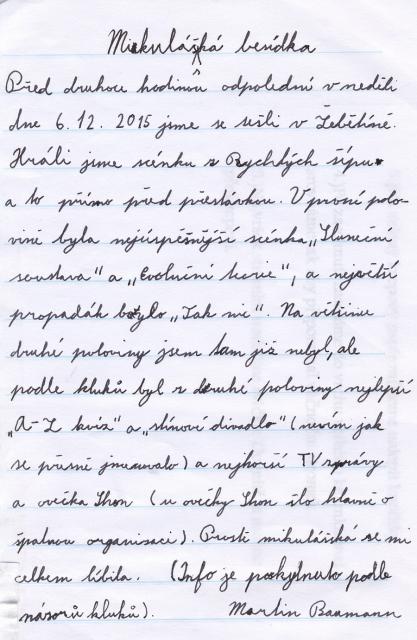 Mikulášská besídka
Před druhou hodinou odpolední v neděli
dne 6.12. 2015 jsme se sešli v Žebětíně.
Hráli jsme scénku z Rychlých šípů
a to přímo před přestávkou. V první polo-
vině byla nejúspěšnější scénka „Sluneční
soustava" a „Evoluční teorie", a největší
propadák bylo „Tak nic". Na většinu
druhé poloviny jsem tam již nebyl, ale
podle kluků byl z druhé poloviny nejlepší
„A-Z kvíz" a „stínové divadlo" (nevím jak
se přesně jmenovalo) a nejhorší TV zprávy
a ovečka Shon (u ovečky Shon šlo hlavně o
špatnou organisaci). Prostě mikulášská se mi
celkem líbila. (Info je poskytnuto podle
názorů kluků). Martin Baumann